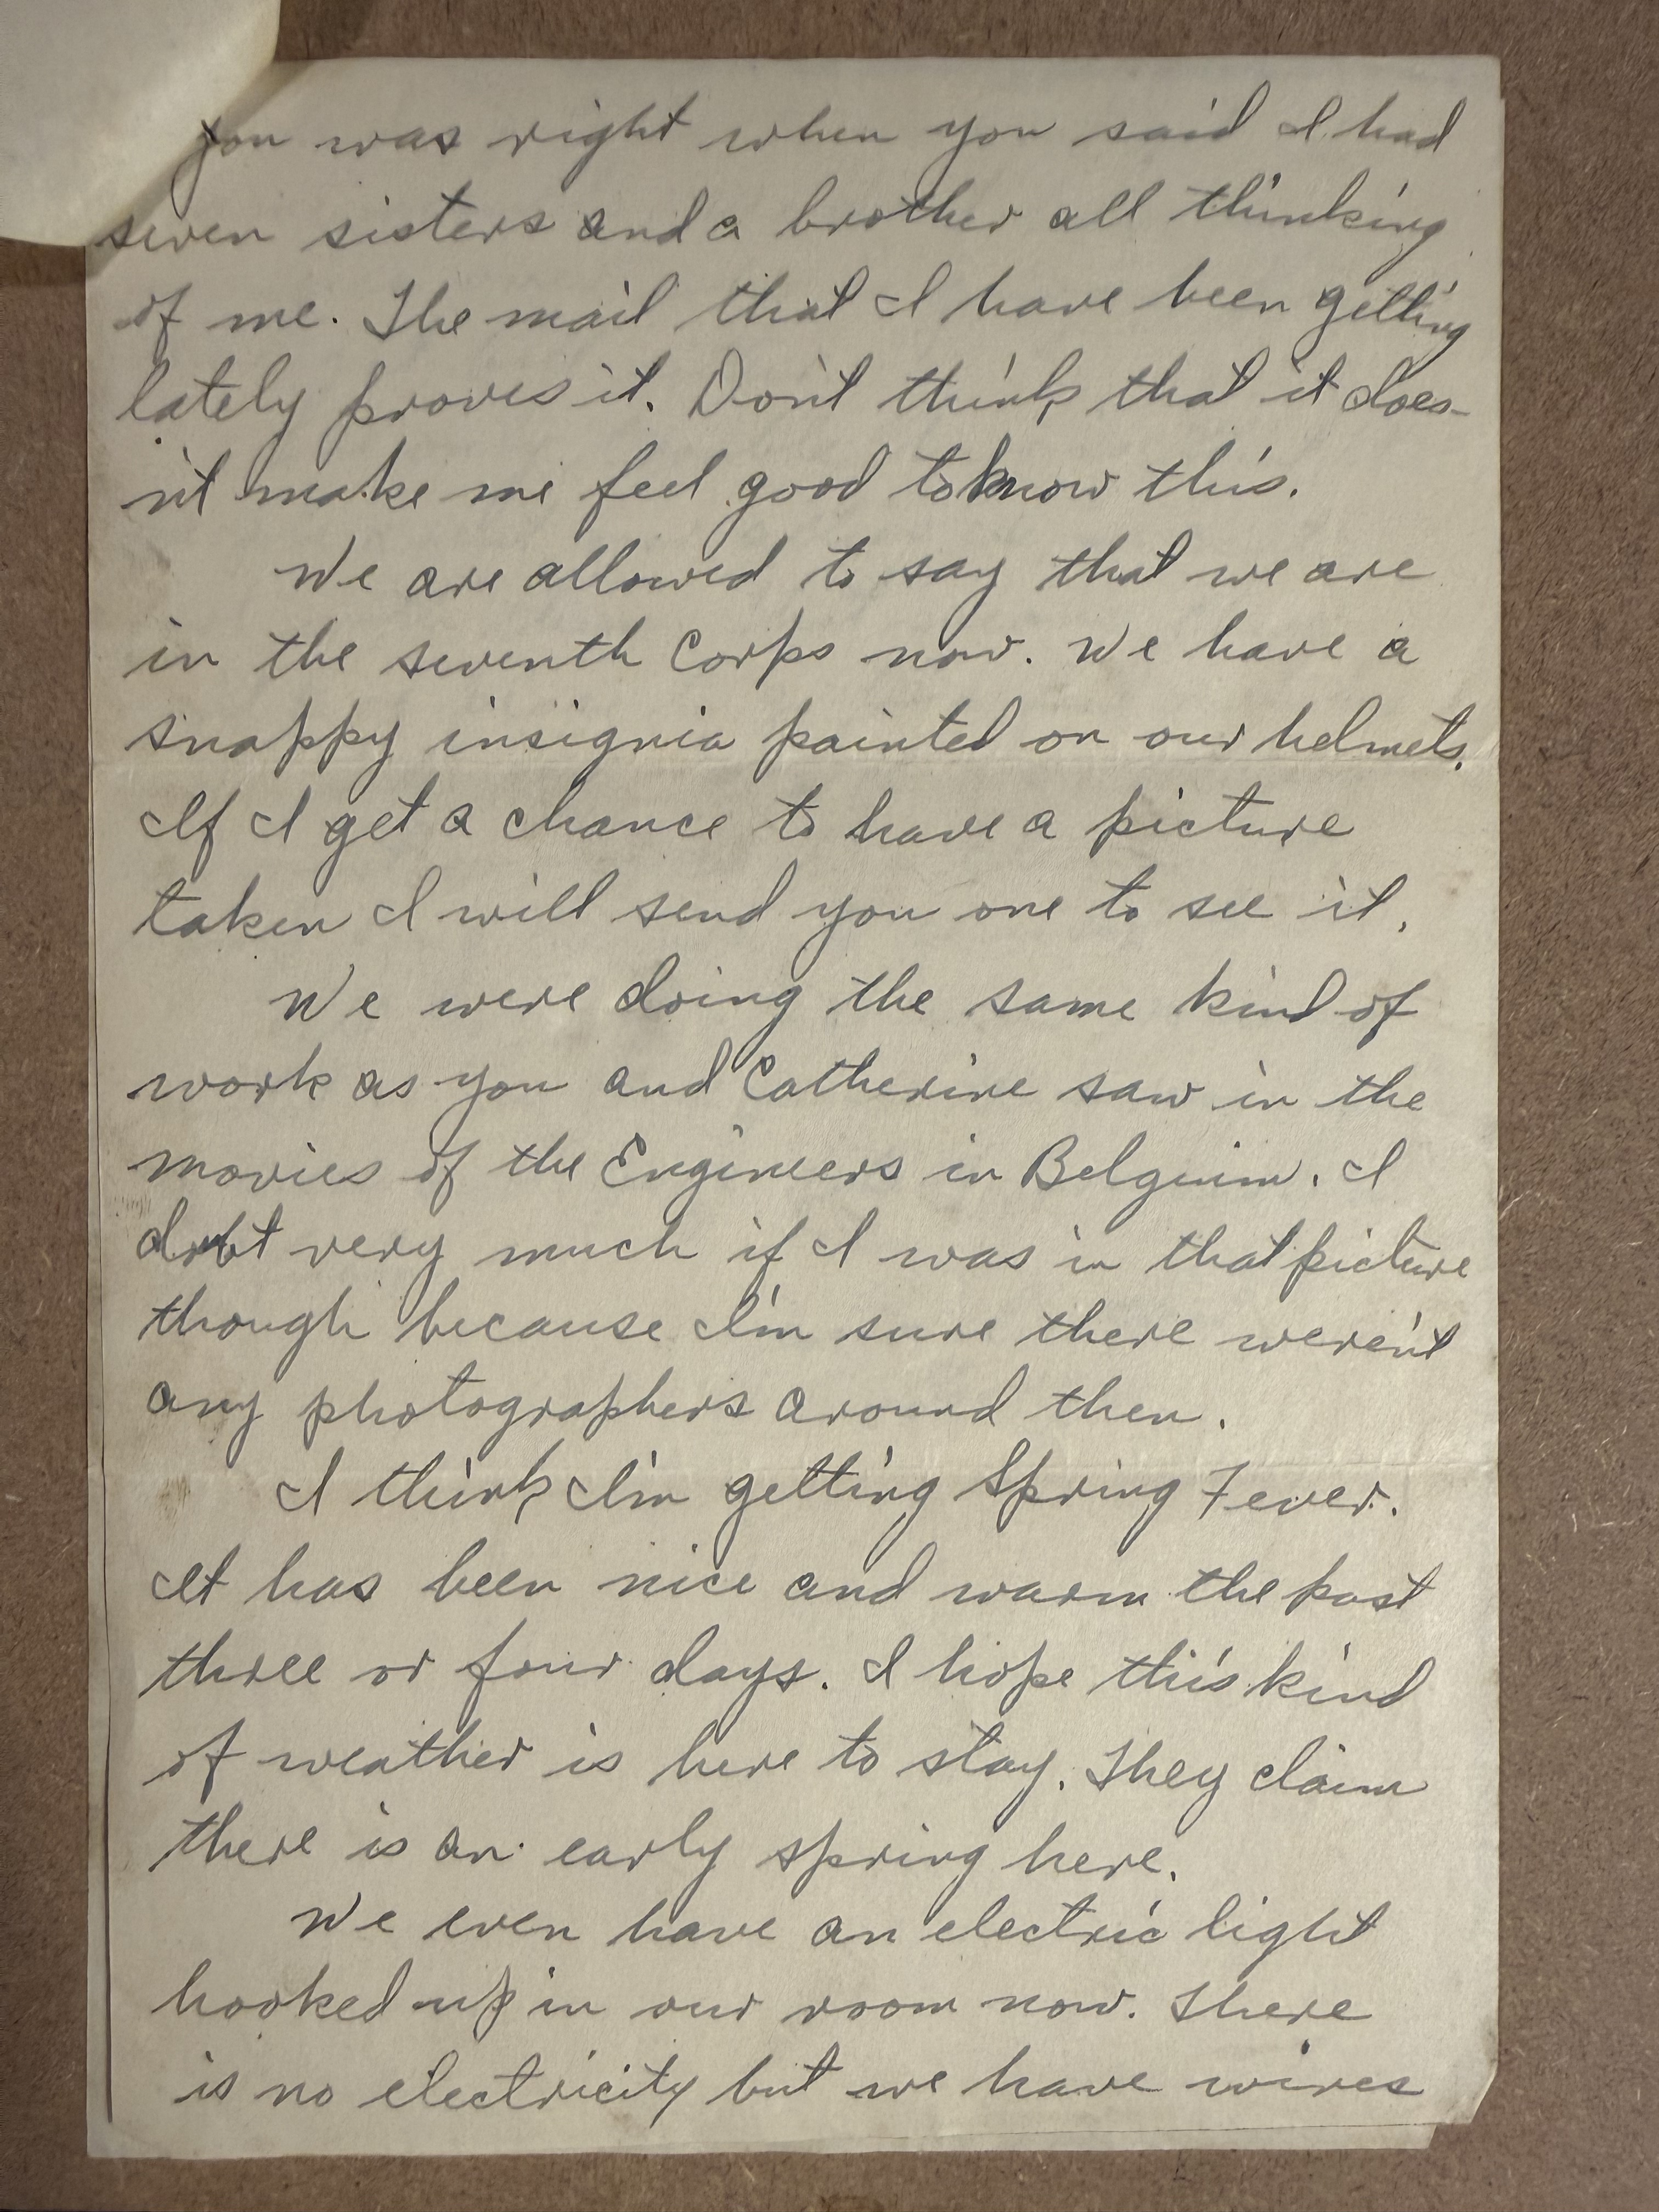 you was right when you said I had
seven sisters and a brother all thinking
of me. The mail that I have been getting
lately proves it. Don't think that it does-
n't make me feel good to know this.
We are allowed to say that we are
in the seventh Corps now. We have a
snappy insignia painted on our helmets.
If I get a chance to have a picture
taken I will send you one to see it.
We were doing the same kind of
work as you and Catherine saw in the
movies of the Engineers in Belguim. I
doubt very much if I was in that picture
though because I'm sure there weren't
any photographers around then.
I think I'm getting Spring Fever.
It has been nice and warm the past
three or four days. I hope this kind
of weather is here to stay. They claim
there is an early spring here.
We even have an electric light
hooked up in our room now. There
is no electricity but we have wires